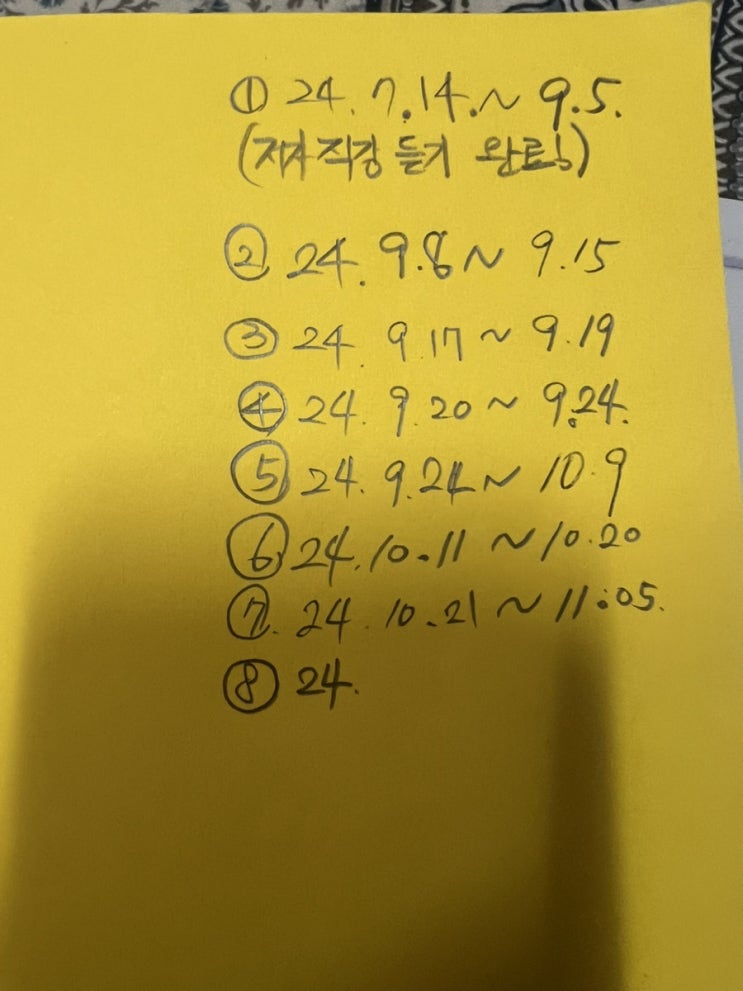 ① 24. 7. 14. ~ 9. 5.
(저자 직강 듣기 완료!)
② 24. 9.8 ~ 9.15
③ 24. 9 17 ~ 9.19
④ 24. 9. 20 ~ 9.24.
⑤ 24. 9.24 ~ 10.9
⑥ 24.10.11 ~ 10.20
⑦. 24. 10.21 ~ 11.05.
⑧ 24.